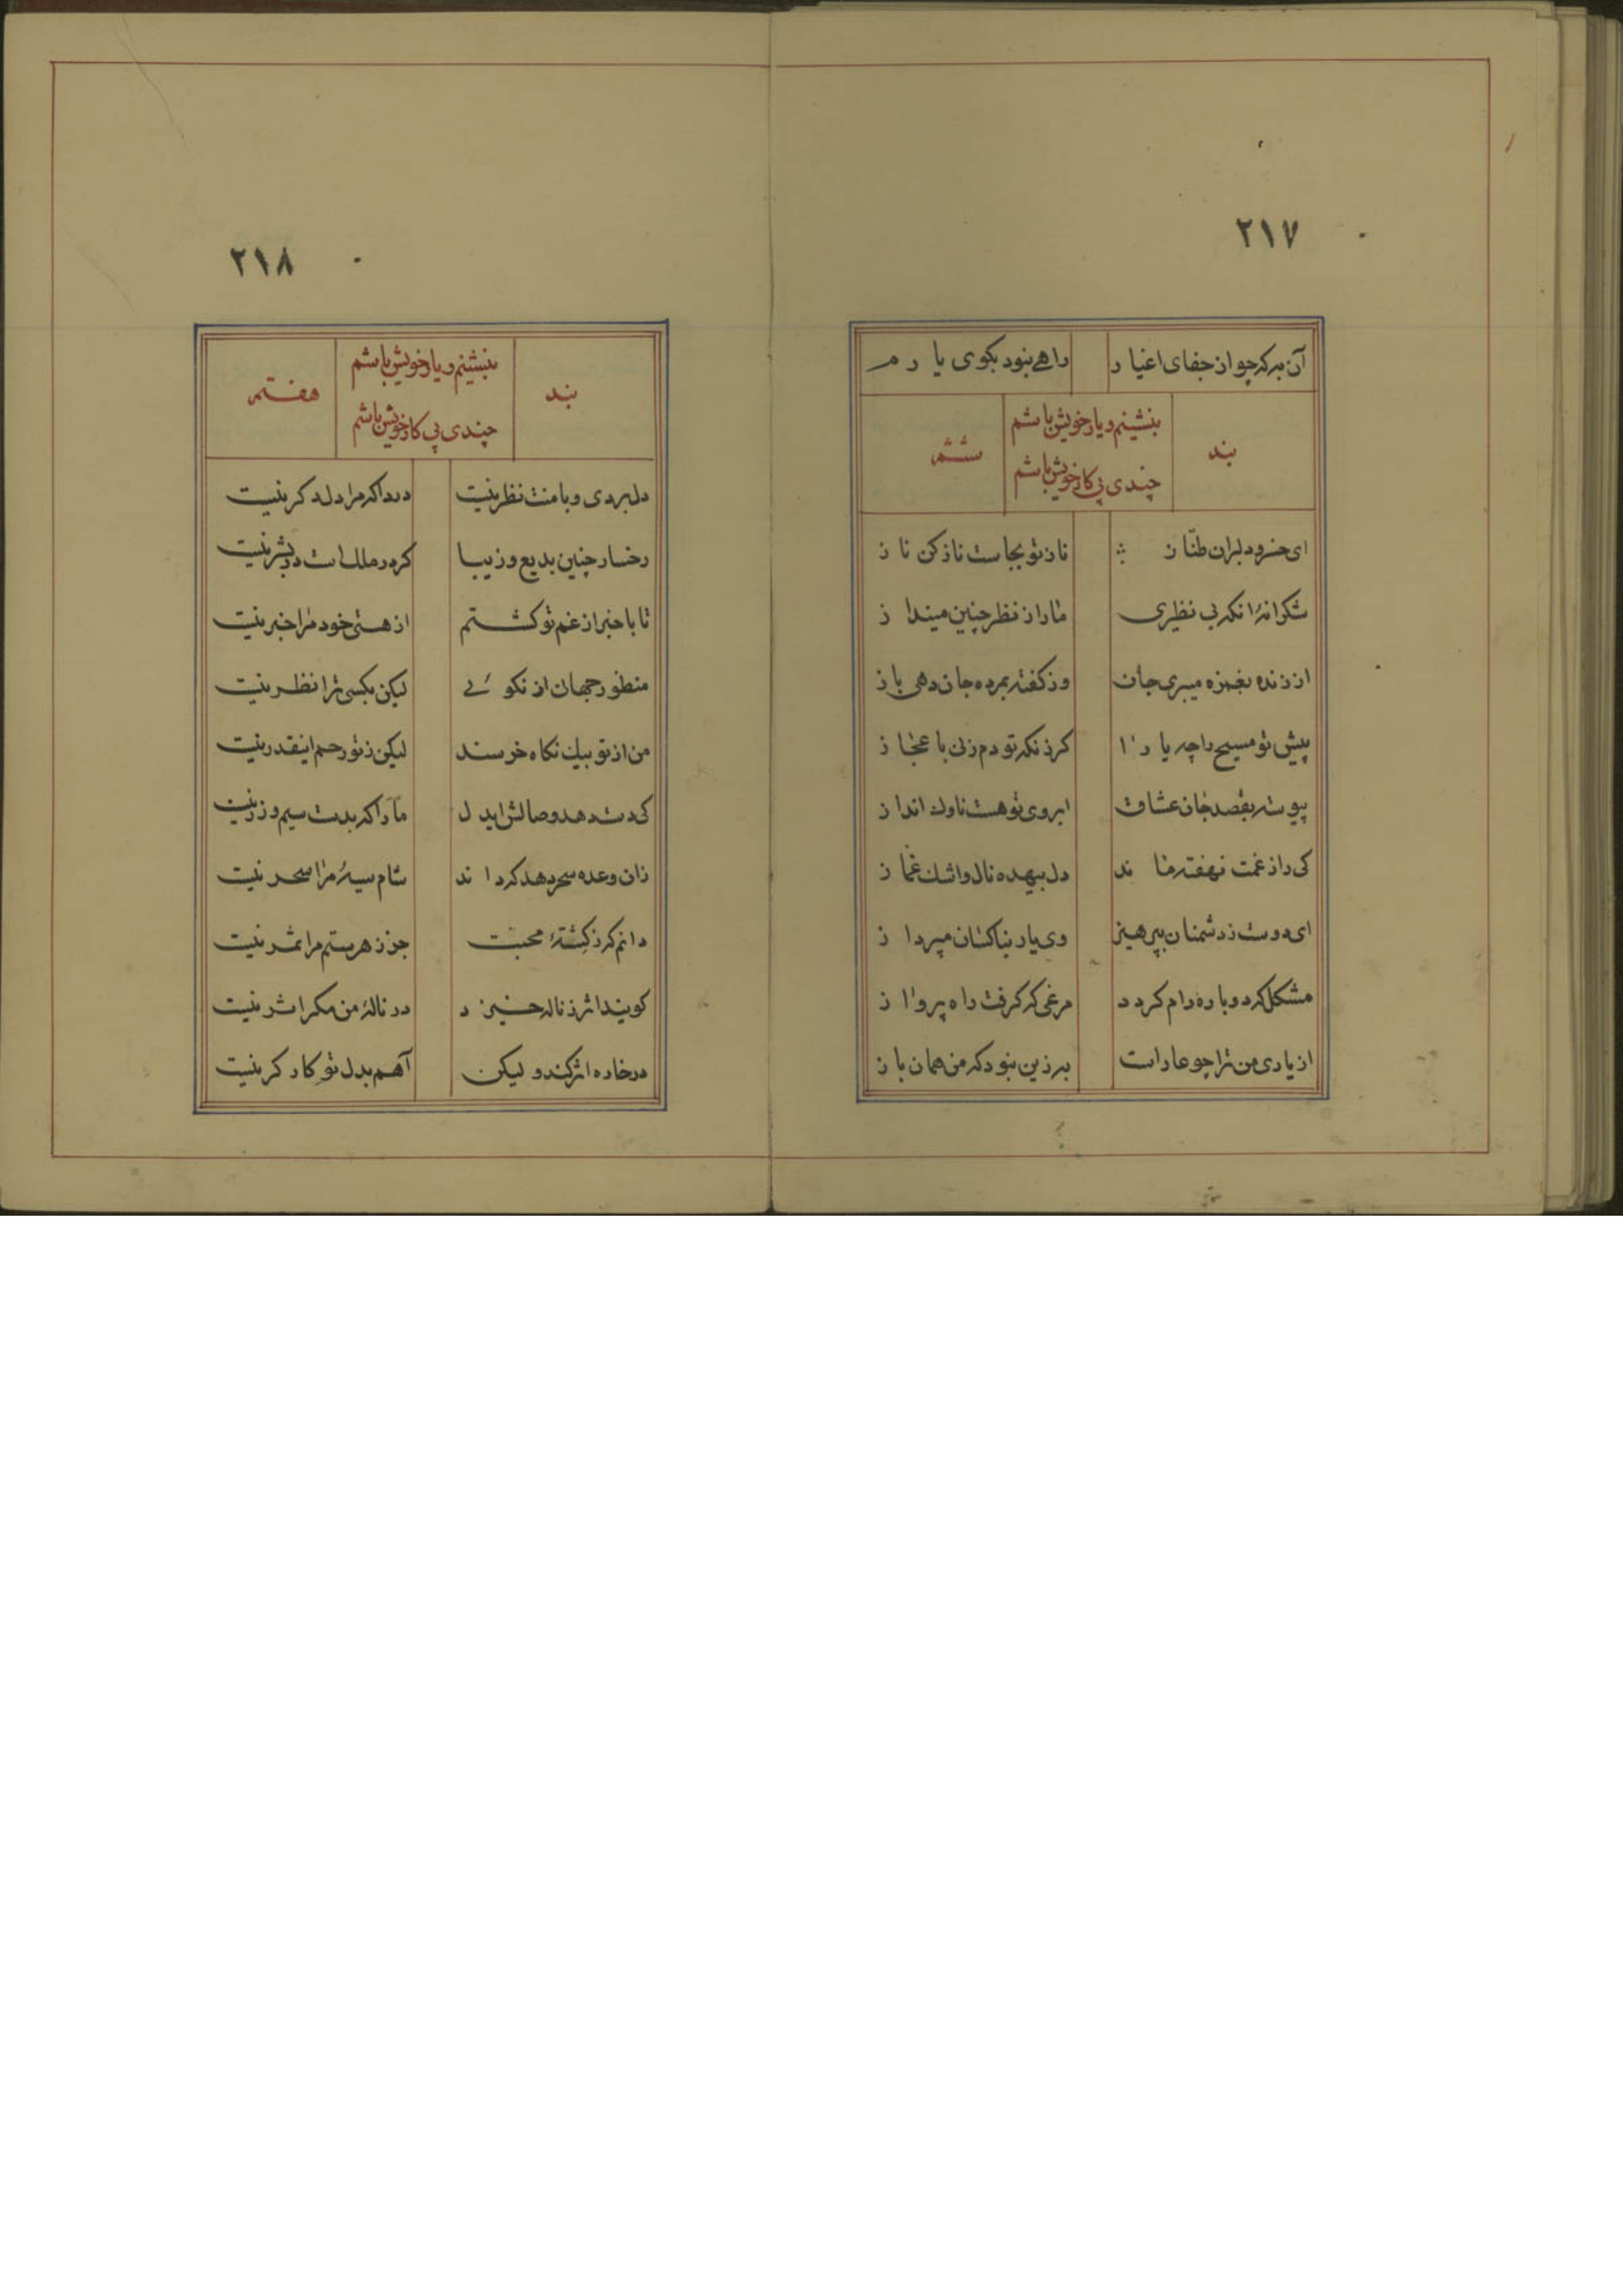 ۲۱۷
آن به که چو از جفای اغیار راهے نبود بکوی یارم
بند بنشینم و یار خویش باشم ششم
چندی پی کار خویش باشم
ای خسرو دلبران طنّاز ناز تو بجاست ناز کن ناز
شکرانهٔ انکه بی نظیری ما را ز نظر چنین مینداز
از زنده بغمزه میبری جان وز کفته بمرده جان دهی باز
پیش تو مسیح را چه یارا کر زنکه تو دم زنی باعجاز
پیوسته بقصد جان عشاق ابروی تو هست ناوك انداز
کی راز غمت نهفته ماند دل بیهده نال و اشك غمّاز
ای دوست ز دشمنان بپرهیز وی یار بناکسان مپرداز
مشکل که دوباره رام کردد مرغی که کرفت راه پرواز
از یاری من ترا چو عار است به زین نبود که من همان باز
۲۱۸
بند بنشینم و یار خویش باشم هفتم
چندی پی کار خویش باشم
دل بردی و با منت نظر نیست دردا که مرا دل دکر نیست
رخسار چنین بدیع و زیبا کر در ملك است در بشر نیست
تا با خبر از غم تو کشتم از هستی خود مرا خبر نیست
منظور جهان از نکوئے لیکن بکسی ترا نظر نیست
من از تو بیك نکاه خرسند لیکن ز تو رحم اینقدر نیست
کی دست دهد وصالش ایدل ما را که بدست سیم و زر نیست
زان وعده سحر دهد که داند شام سیهٔ مرا سحر نیست
دانم که ز کشتهٔ محبت جز زهر ستم مرا ثمر نیست
کویند اثر ز ناله خیزد در نالهٔ من مکر اثر نیست
در خاره اثر کند و لیکن آهم بدل تو کارکر نیست